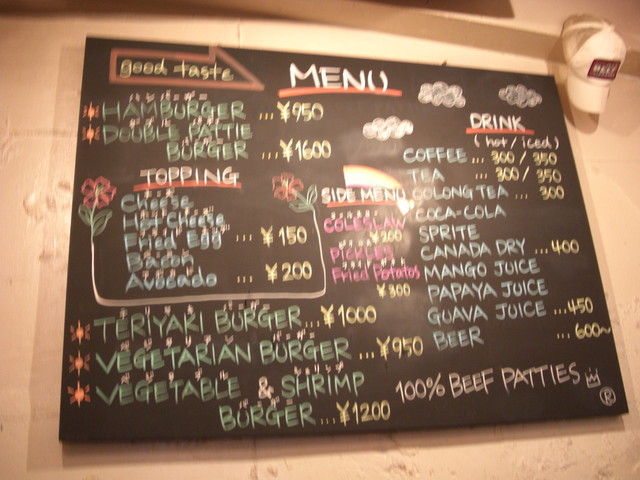 good taste
MENU
HAMBURGER ... ¥950
DOUBLE PATTIE
BURGER ... ¥1600
TOPPING
Cheese
Hot Cheese
Fried Egg ... ¥150
Bacon
Avocado ... ¥200
TERIYAKI BURGER... ¥1000
VEGETARIAN BURGER ... ¥950
VEGETABLE & SHRIMP
BURGER ... ¥1200
SIDE MENU
COLESLAW
¥200
PICKLES
Fried Potatos
¥300
DRINK
(hot / iced)
COFFEE ... 300 / 350
TEA ... 300 / 350
OOLONG TEA ... 300
COCA-COLA
SPRITE
CANADA DRY ...400
MANGO JUICE
PAPAYA JUICE
GUAVA JUICE ...450
BEER ...600~
100% BEEF PATTIES
®